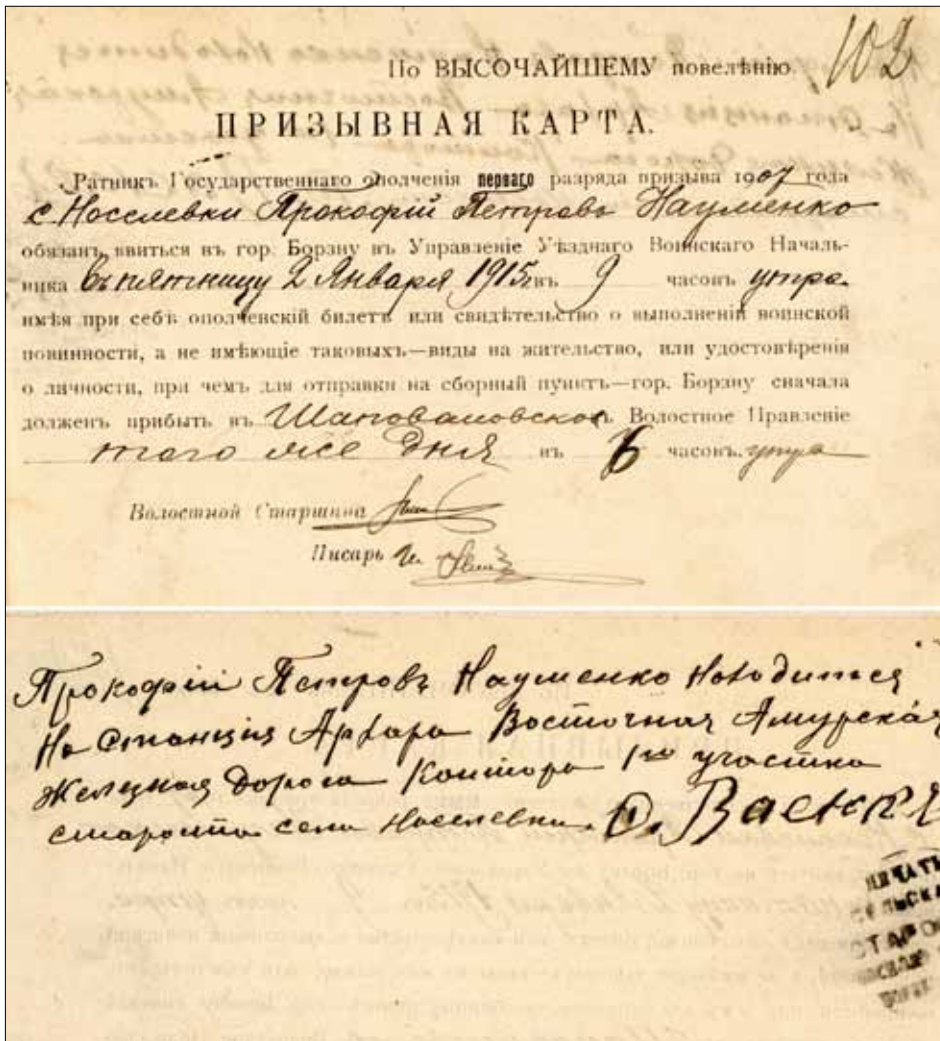 По ВЫСОЧАЙШЕМУ повелѣнію.
102
ПРИЗЫВНАЯ КАРТА.
Ратникъ Государственнаго ополченія перваго разряда призыва 1907 года
с. Носелевки Прокофій Петровъ Науменко
обязанъ явиться въ гор. Борзну въ Управленіе Уѣзднаго Воинскаго Началь-
ника въ пятницу 2 Января 1915 г. въ 9 часовъ утра.
имѣя при себѣ ополченскій билетъ или свидѣтельство о выполненіи воинской
повинности, а не имѣющіе таковыхъ—виды на жительство, или удостовѣренія
о личности, при чемъ для отправки на сборный пунктъ—гор. Борзну сначала
долженъ прибыть въ Шаповаловское Волостное Правленіе
того же дня въ 6 часовъ утра
Волостной Старшина
Писарь
Прокофій Петровъ Науменко находится
На Станція Архара Восточная Амурская
Желецная Дорога Контора 1го участка
староста села Носелевки.
ПЕЧАТЬ
СЕЛЬСКА
СТАРО